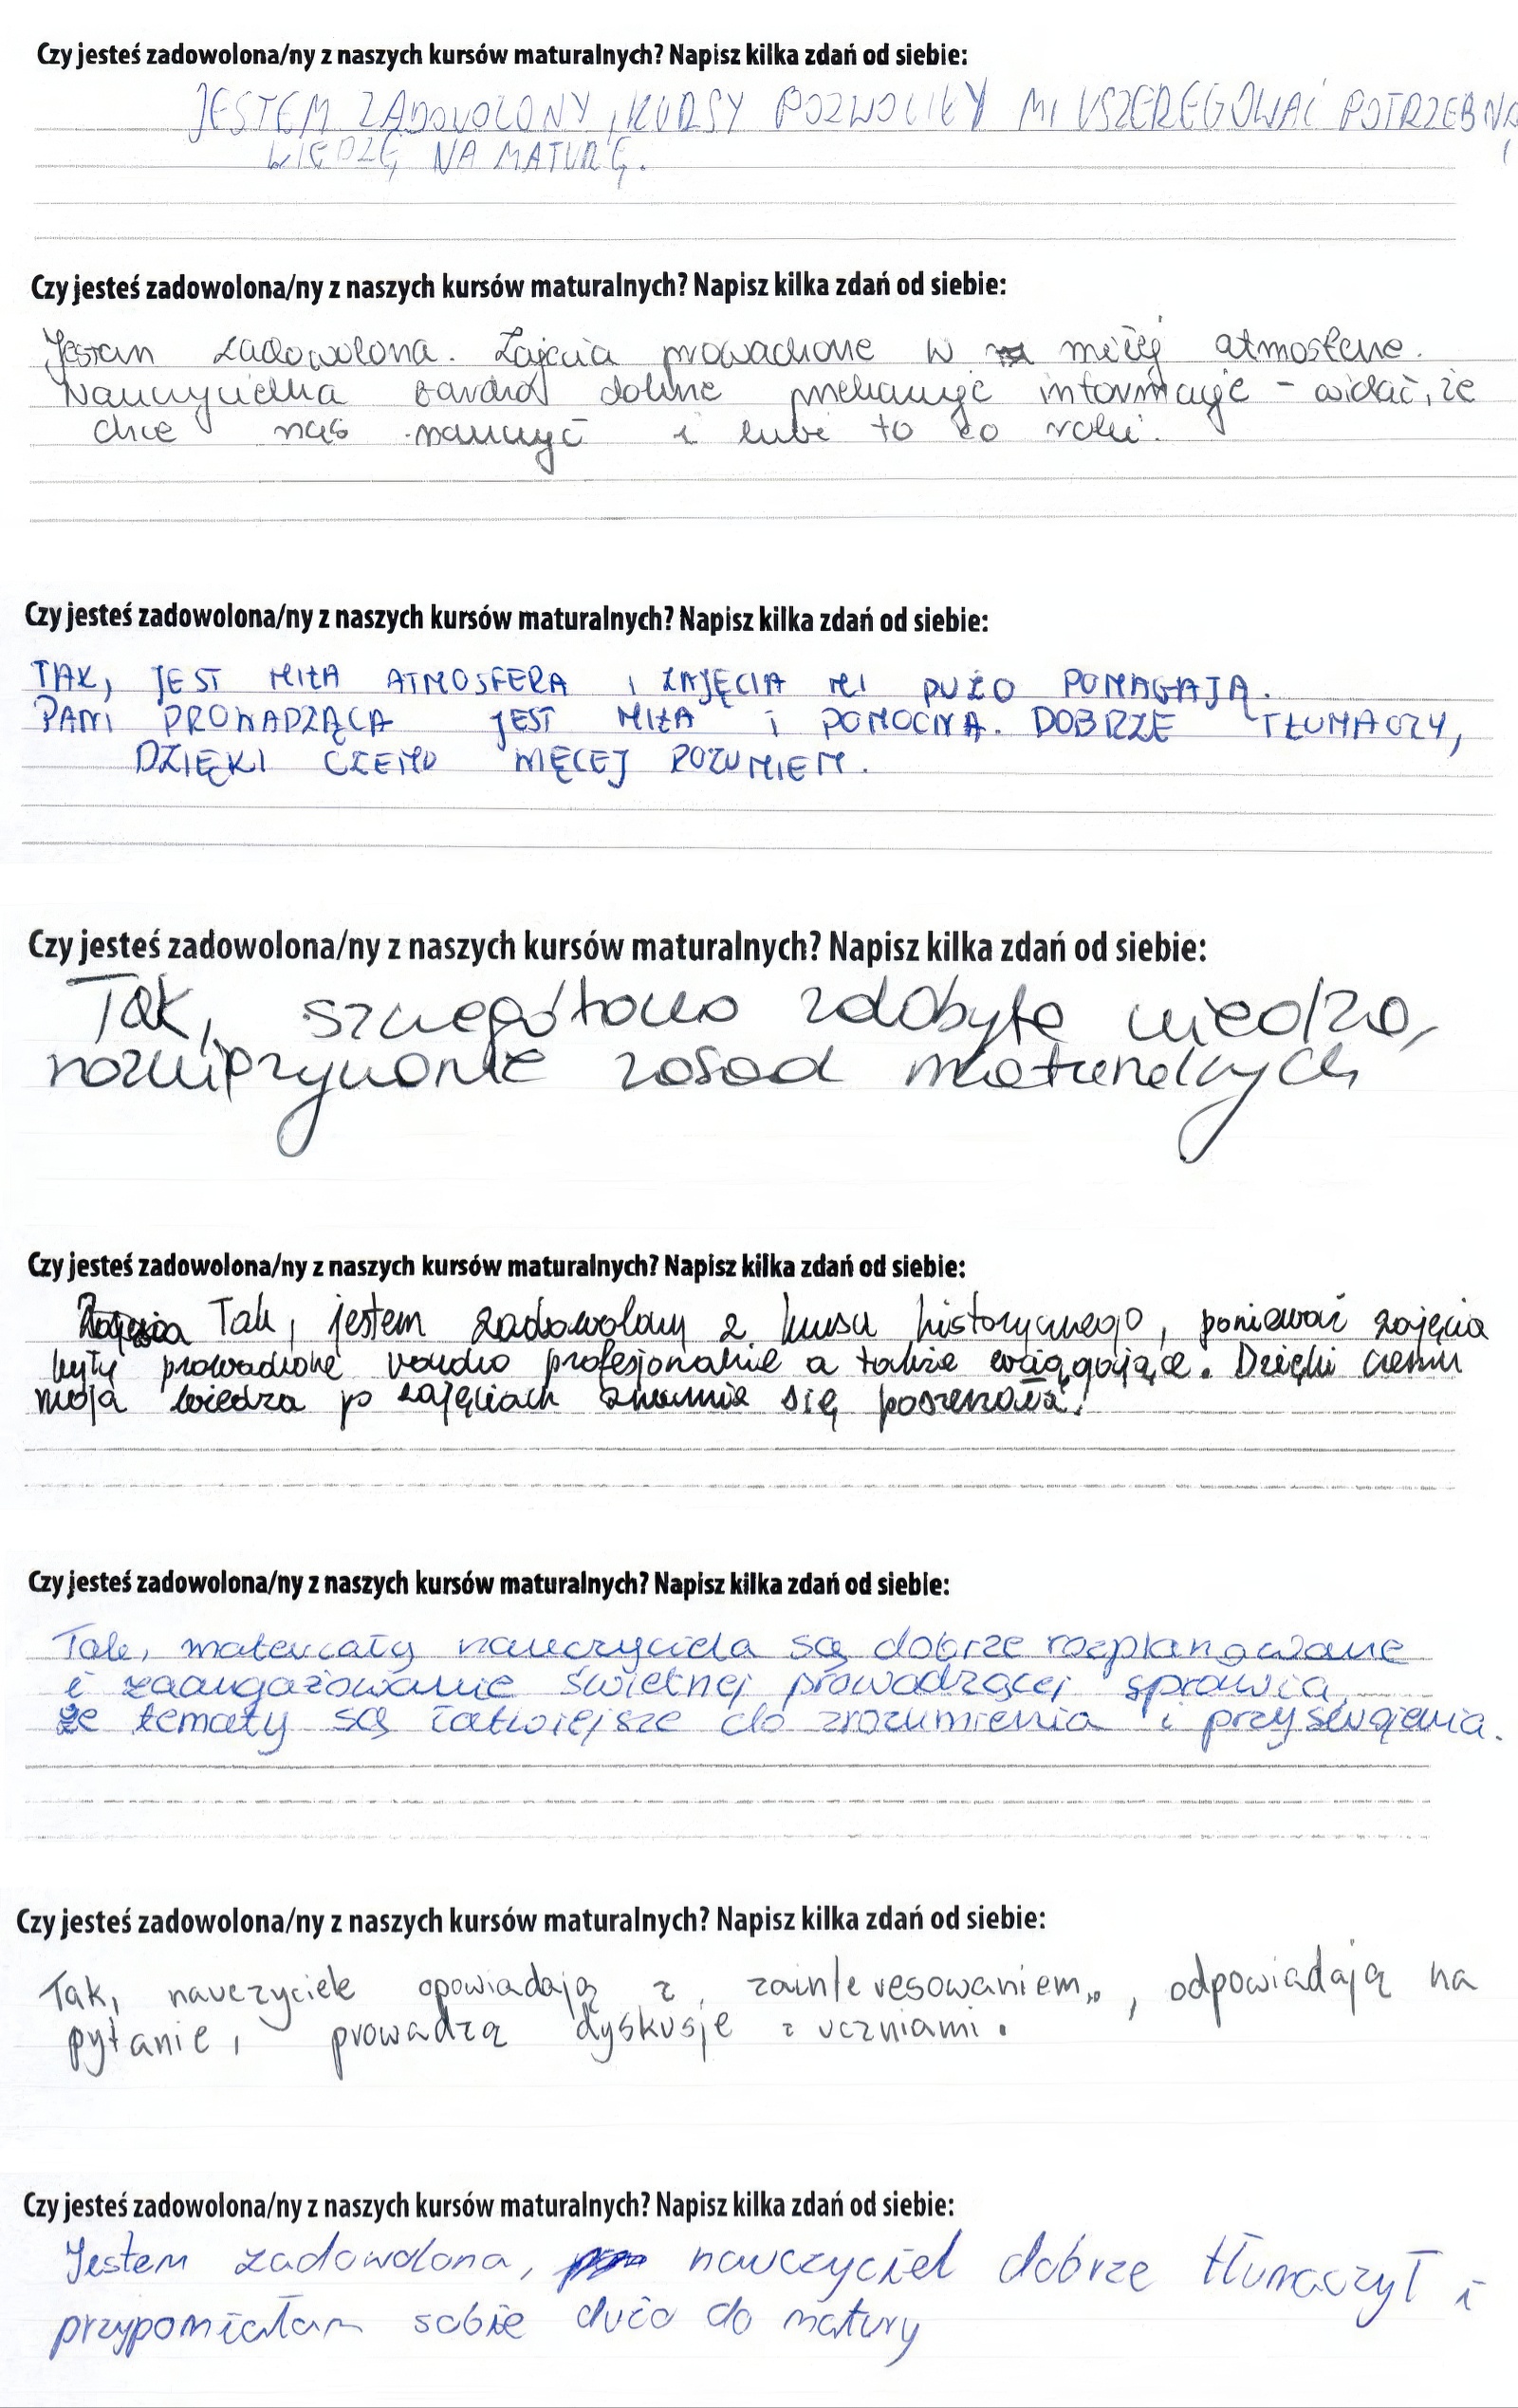 Czy jesteś zadowolona/ny z naszych kursów maturalnych? Napisz kilka zdań od siebie:
JESTEM ZADOWOLONY, KURSY POZWOLIŁY MI USZEREGOWAĆ POTRZEBNĄ
WIEDZĘ NA MATURĘ.
Czy jesteś zadowolona/ny z naszych kursów maturalnych? Napisz kilka zdań od siebie:
Jestem zadowolona. Zajęcia prowadzone w miłej atmosferze.
Nauczycielka bardzo dobrze przekazuje informacje - widać, że
chce nas nauczyć i lubi to co robi.
Czy jesteś zadowolona/ny z naszych kursów maturalnych? Napisz kilka zdań od siebie:
TAK, JEST MIŁA ATMOSFERA I ZAJĘCIA MI DUŻO POMAGAJĄ.
PANI PROWADZĄCA JEST MIŁA I POMOCNA. DOBRZE TŁUMACZY,
DZIĘKI CZEMU WIĘCEJ ROZUMIEM.
Czy jesteś zadowolona/ny z naszych kursów maturalnych? Napisz kilka zdań od siebie:
Tak, szczegółowo zdobyta wiedza,
rozwiązywanie zasad maturalnych
Czy jesteś zadowolona/ny z naszych kursów maturalnych? Napisz kilka zdań od siebie:
Tak, jestem zadowolony z kursu historycznego, ponieważ zajęcia
były prowadzone bardzo profesjonalnie a także wciągające. Dzięki czemu
moja wiedza po zajęciach znacznie się poszerzała!
Czy jesteś zadowolona/ny z naszych kursów maturalnych? Napisz kilka zdań od siebie:
Tak, materiały nauczyciela są dobrze rozplanowane
i zaangażowanie świetnej prowadzącej sprawia,
że tematy są łatwiejsze do zrozumienia i przyswojenia.
Czy jesteś zadowolona/ny z naszych kursów maturalnych? Napisz kilka zdań od siebie:
Tak, nauczyciele opowiadają z zainteresowaniem, odpowiadają na
pytanie, prowadzą dyskusje z uczniami.
Czy jesteś zadowolona/ny z naszych kursów maturalnych? Napisz kilka zdań od siebie:
Jestem zadowolona, nauczyciel dobrze tłumaczył i
przypomiałam sobie dużo do matury